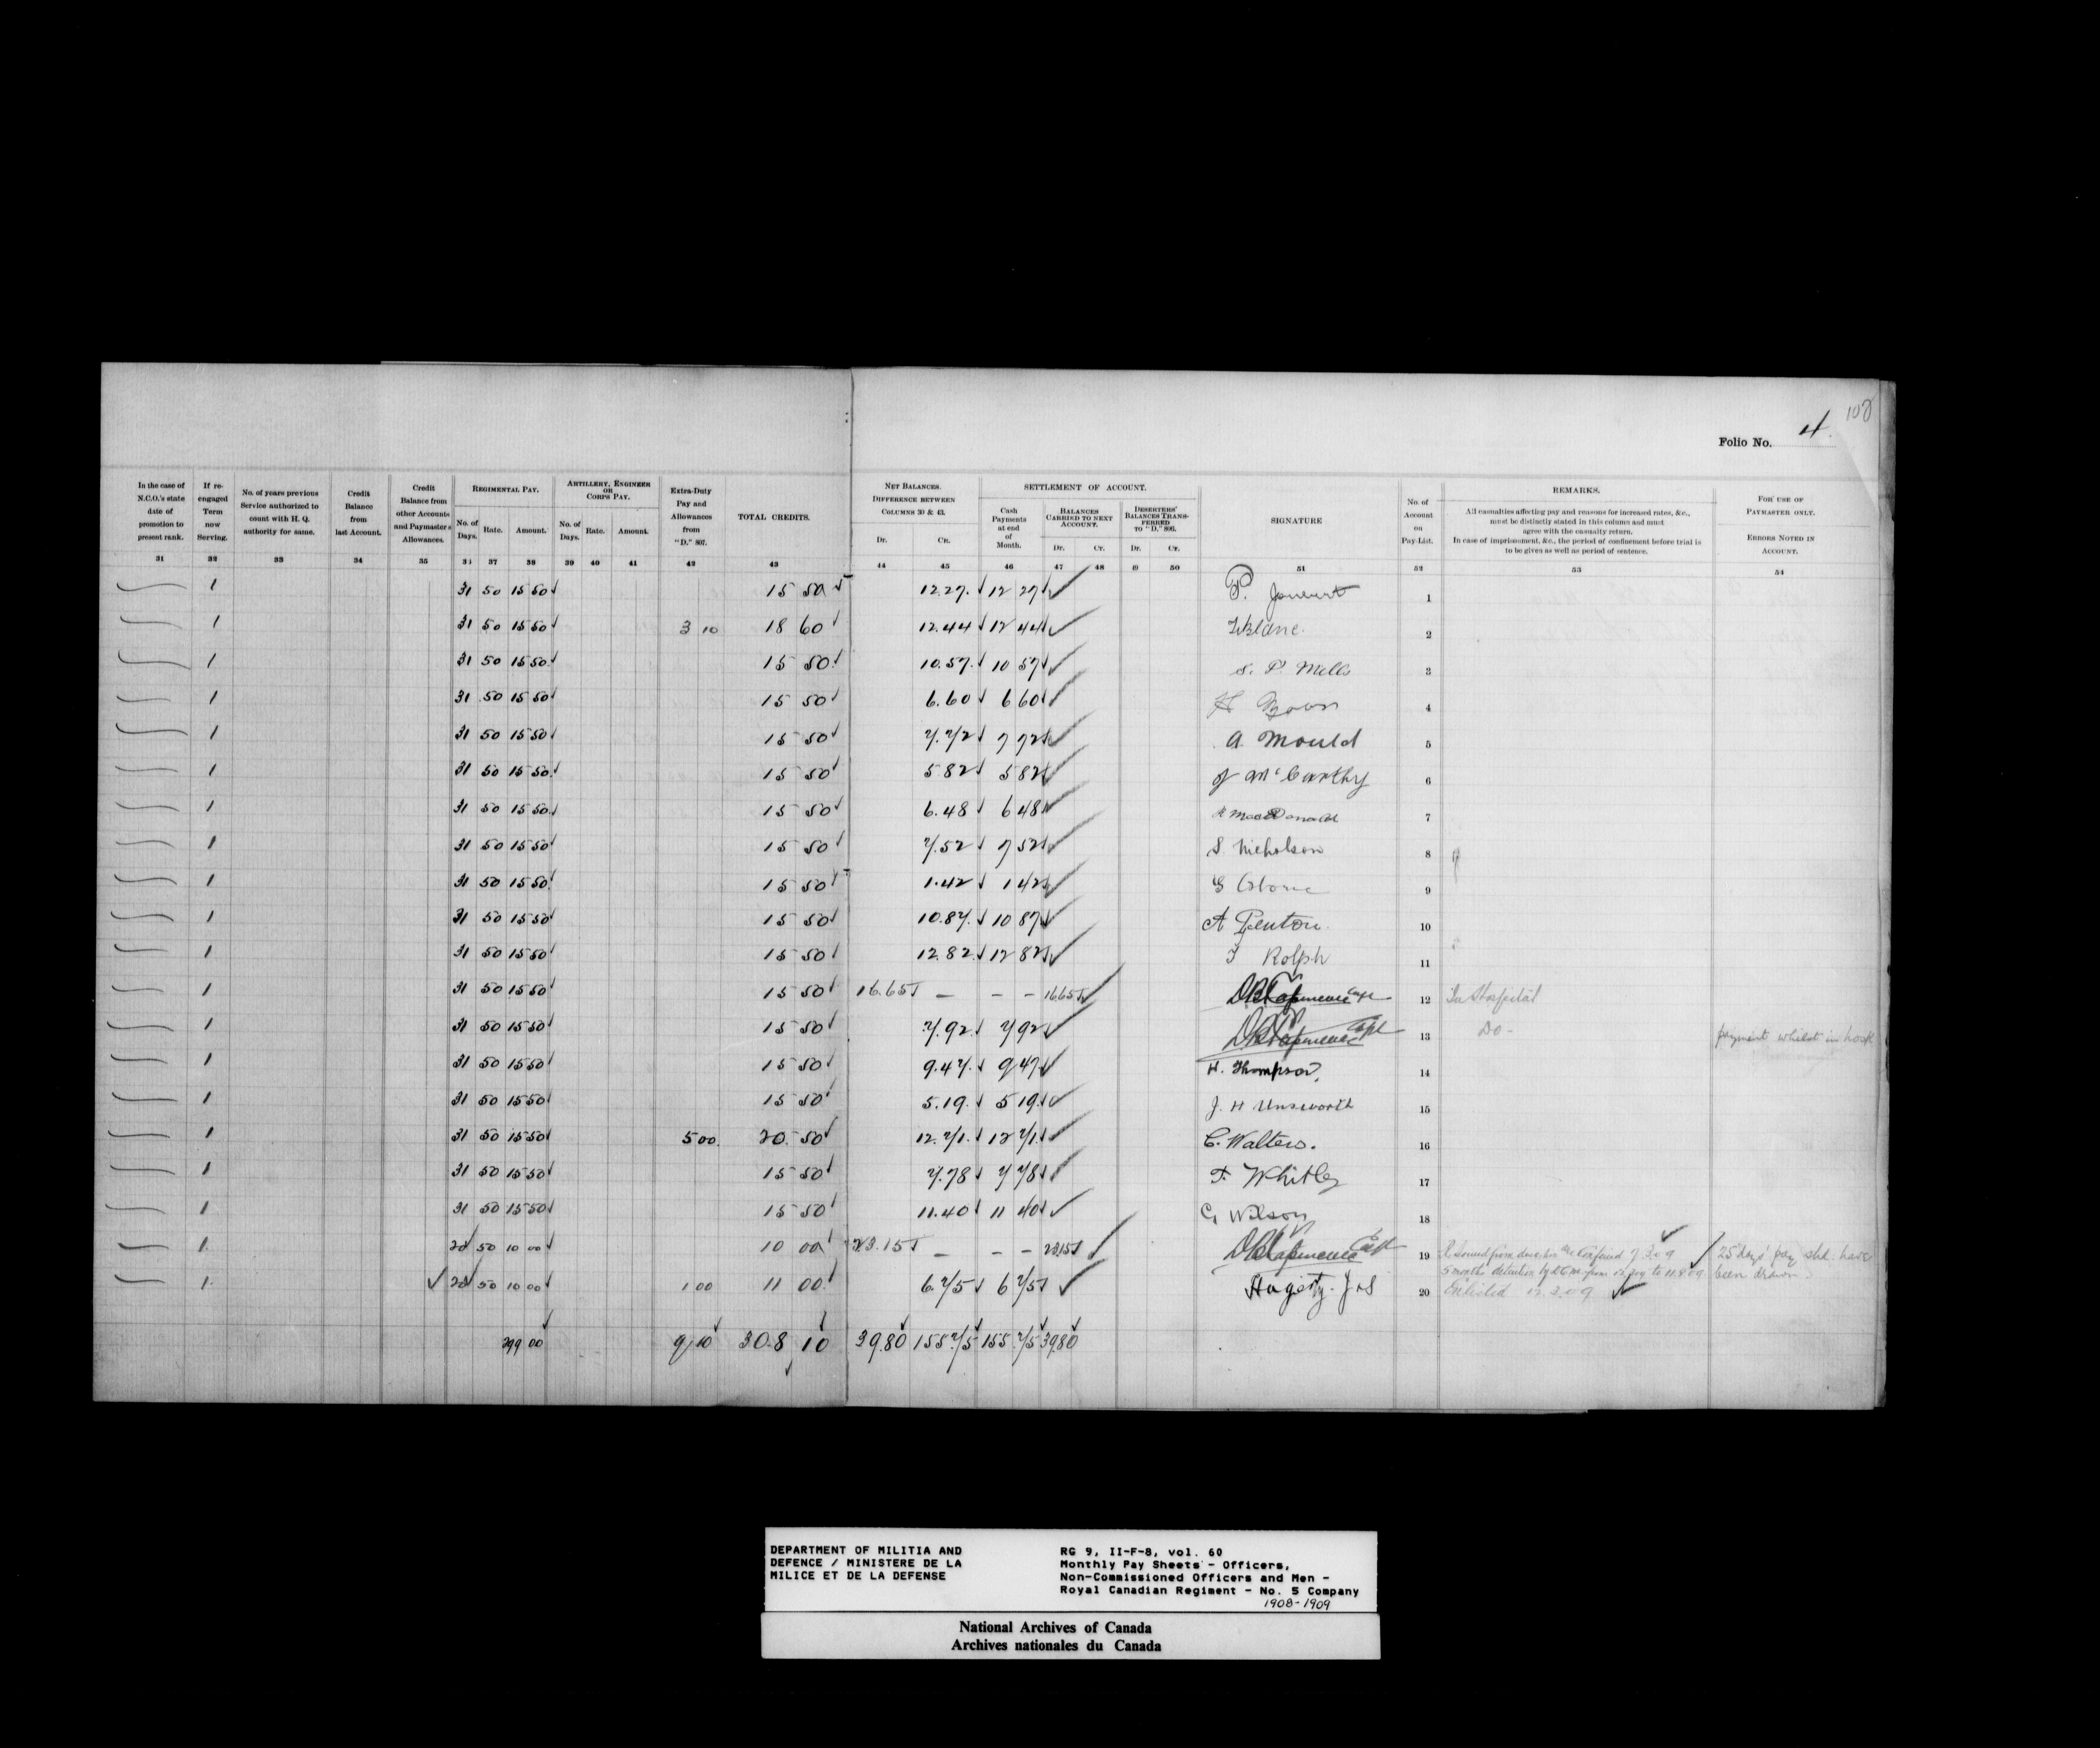 108
Folio No. 4.
In the case of N.C.O.'s state date of promotion to present rank. 31
If re-engaged Term now Serving. 32
No. of years previous Service authorized to count with H. Q. authority for same. 33
Credit Balance from last Account. 34
Credit Balance from other Accounts and Paymasters Allowances. 35
REGIMENTAL PAY. No. of Days. Rate. 37 Amount. 38
ARTILLERY, ENGINEER OR CORPS PAY. No. of Days. 39 Rate. 40 Amount. 41
Extra-Duty Pay and Allowances from "D." 807. 42
TOTAL CREDITS. 43
NET BALANCES. DIFFERENCE BETWEEN COLUMNS 30 & 43. Dr. 44 Cr. 45
SETTLEMENT OF ACCOUNT. Cash Payments at end of Month. 46
BALANCES CARRIED TO NEXT ACCOUNT. Dr. 47 Cr. 48
DESERTERS' BALANCES TRANSFERRED TO "D." 806. Dr. Cr. 50
SIGNATURE 51
No. of Account on Pay-List. 52
REMARKS. All casualties affecting pay and reasons for increased rates, &c., must be distinctly stated in this column and must agree with the casualty return. In case of imprisonment, &c., the period of confinement before trial is to be given as well as period of sentence. 53
FOR USE OF PAYMASTER ONLY. ERRORS NOTED IN ACCOUNT. 54
1 31 50 15 50 15 50 12.27. 12 27 P. 1
1 31 50 15 50 3 10 18 60 12.44 12 44 2
1 31 50 15 50 15 50 10.57. 10 57 S. P. Mills 3
1 31 50 15 50 15 50 6.60 6 60 H 4
1 31 50 15 50 15 50 7.72 7 72 A. Mould 5
1 31 50 15 50 15 50 5 82 5 82 J McCarthy 6
1 31 50 15 50 15 50 6.48 6 48 MacDonald 7
1 31 50 15 50 15 50 7.52 7 52 S. Nicholson 8
1 31 50 15 50 15 50 1.42 1 42 G Osborne 9
1 31 50 15 50 15 50 10.87. 10 87 A Penton 10
1 31 50 15 50 15 50 12.82. 12 82 Rolph 11
1 31 50 15 50 15 50 16.65 – – – 16.65 Capt 12 In Hospital
1 31 50 15 50 15 50 7.92. 7 92 Capt 13 Do - payment whilst in hosp
1 31 50 15 50 15 50 9.47. 9 47 H. Thompson. 14
1 31 50 15 50 15 50 5.19. 5 19. J. H Unsworth 15
1 31 50 15 50 5 00. 20. 50 12.71. 12 71. C. Walters. 16
1 31 50 15 50 15 50 7.78 7 78 F. Whitley 17
1 31 50 15 50 15 50 11.40 11 40 C, Wilson 18
1 20 50 10 00 10 00 23.15 – – – 23.15 Capt 19 Rejoined from desertion Confined 7.3.09 25 days' pay shd. have
5 months detention by from to 11.8.09 been drawn
1. 20 50 10 00 1 00 11 00. 6.75 6 75 Hagerty. Jas 20 Enlisted 12.3.09
299 00 9 10 308 10 39.80 155 75 155 75 39.80
DEPARTMENT OF MILITIA AND
DEFENCE / MINISTERE DE LA
MILICE ET DE LA DEFENSE
RG 9, II-F-8, vol. 60
Monthly Pay Sheets - Officers,
Non-Commissioned Officers and Men -
Royal Canadian Regiment - No. 5 Company
1908-1909
National Archives of Canada
Archives nationales du Canada